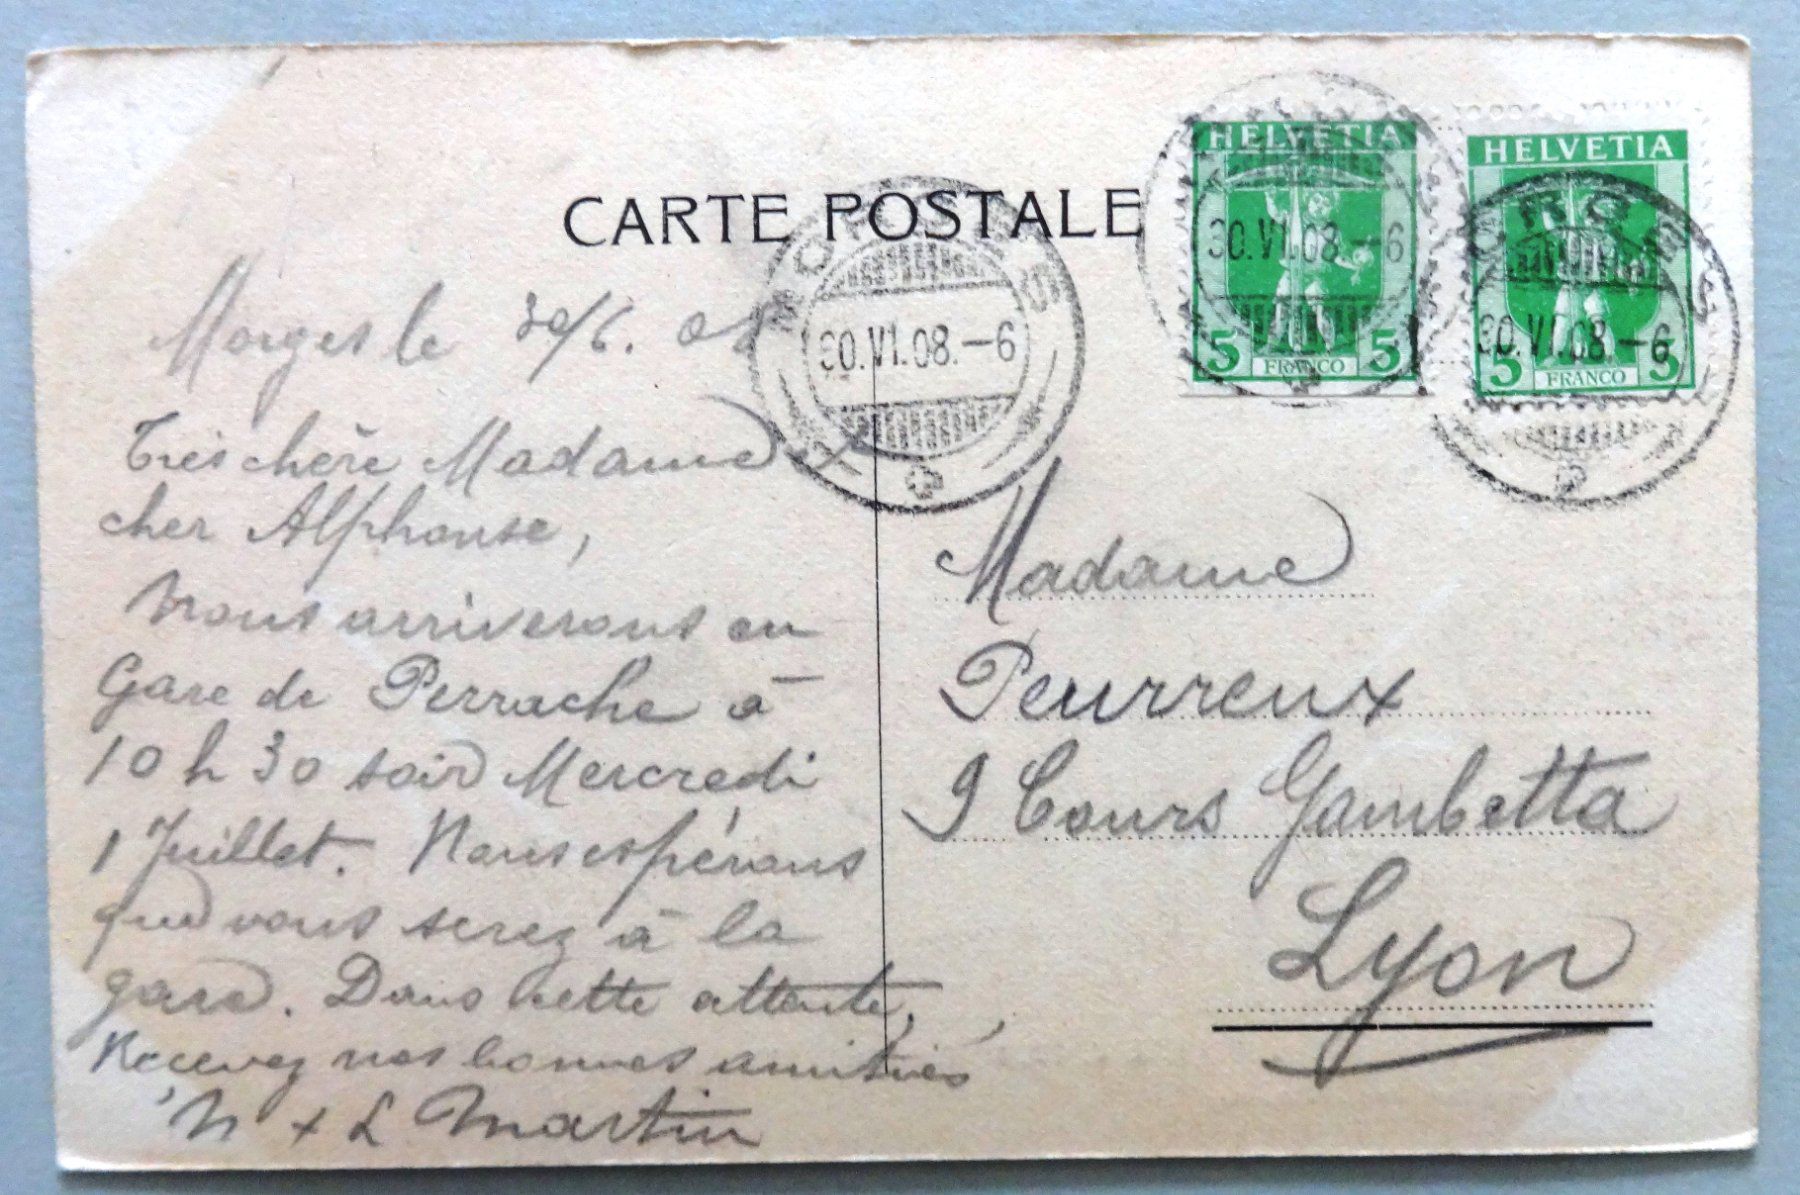 CARTE POSTALE
HELVETIA
5 FRANCO 5
HELVETIA
5 FRANCO 5
MORGES
30.VI.08.–6
30.VI.08.–6
MORGES
30.VI.08.–6
Morges le 30/6. 08
Très chère Madame
cher Alphonse,
Nous arriverons en
Gare de Perrache à
10 h 30 soir Mercredi
1 Juillet. Nous espérons
que vous serez à la
gare. Dans cette attente,
Recevez nos bonnes amitiés
N + L Martin
Madame
Peurreux
9 Cours Gambetta
Lyon